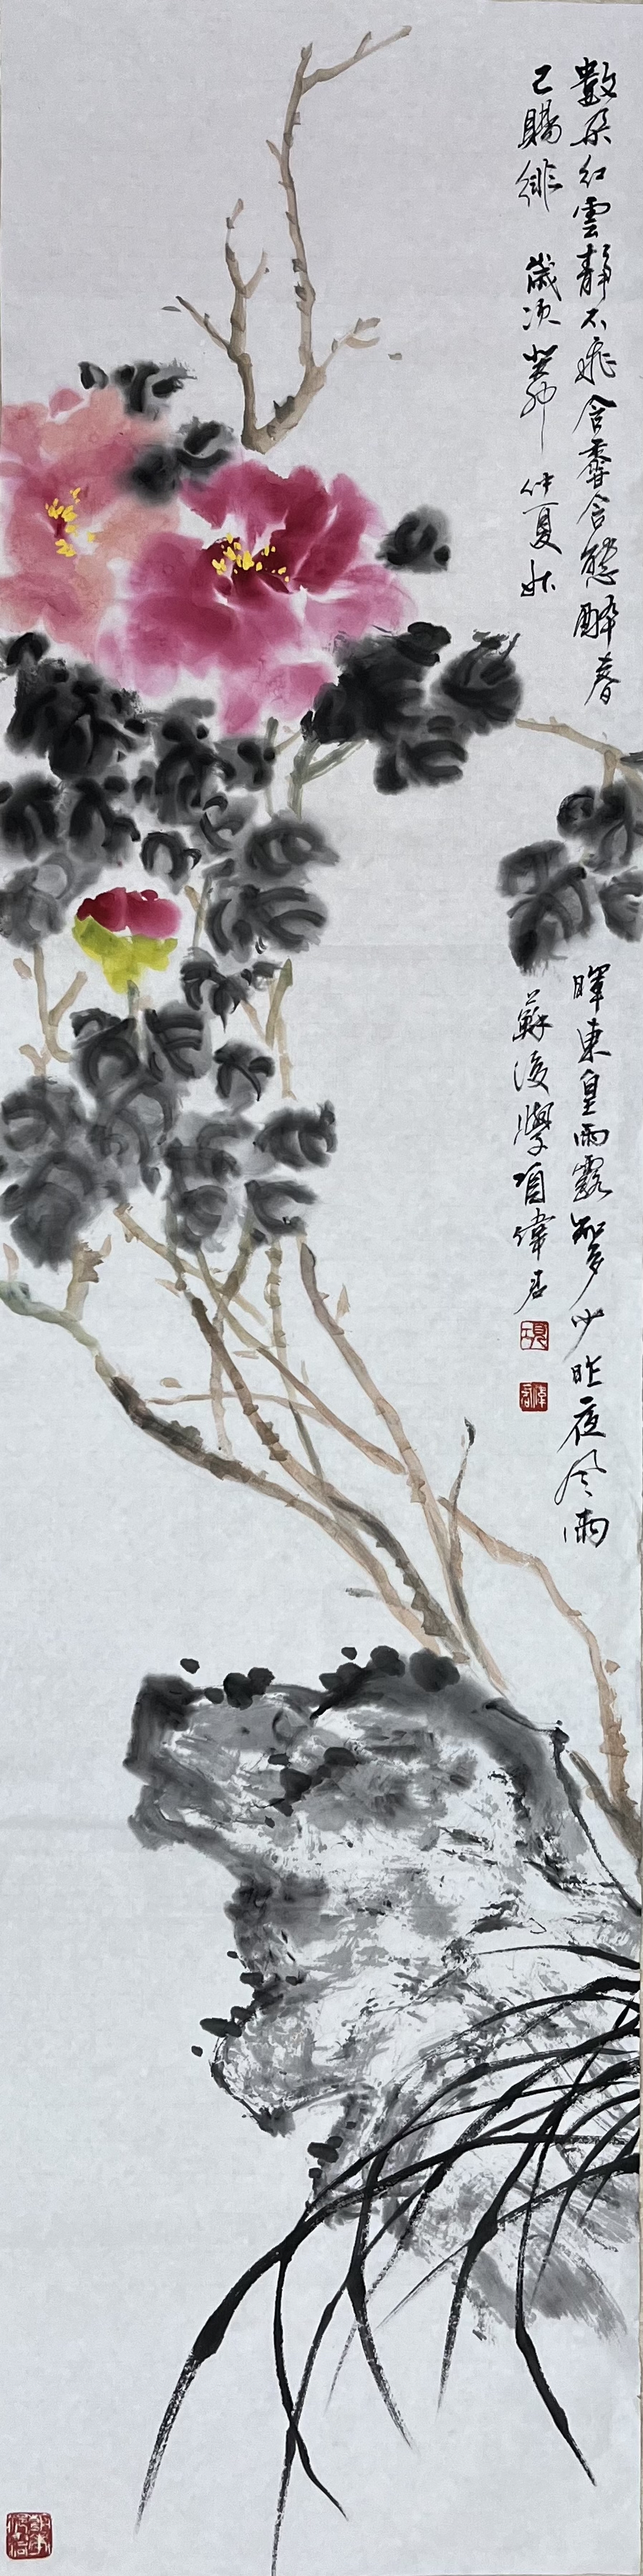 數朵紅雲靜不飛含香含態醉春
暉東皇雨露知多少昨夜風雨
已賜緋 歲次癸卯 仲夏 姑
蘇後學項偉君